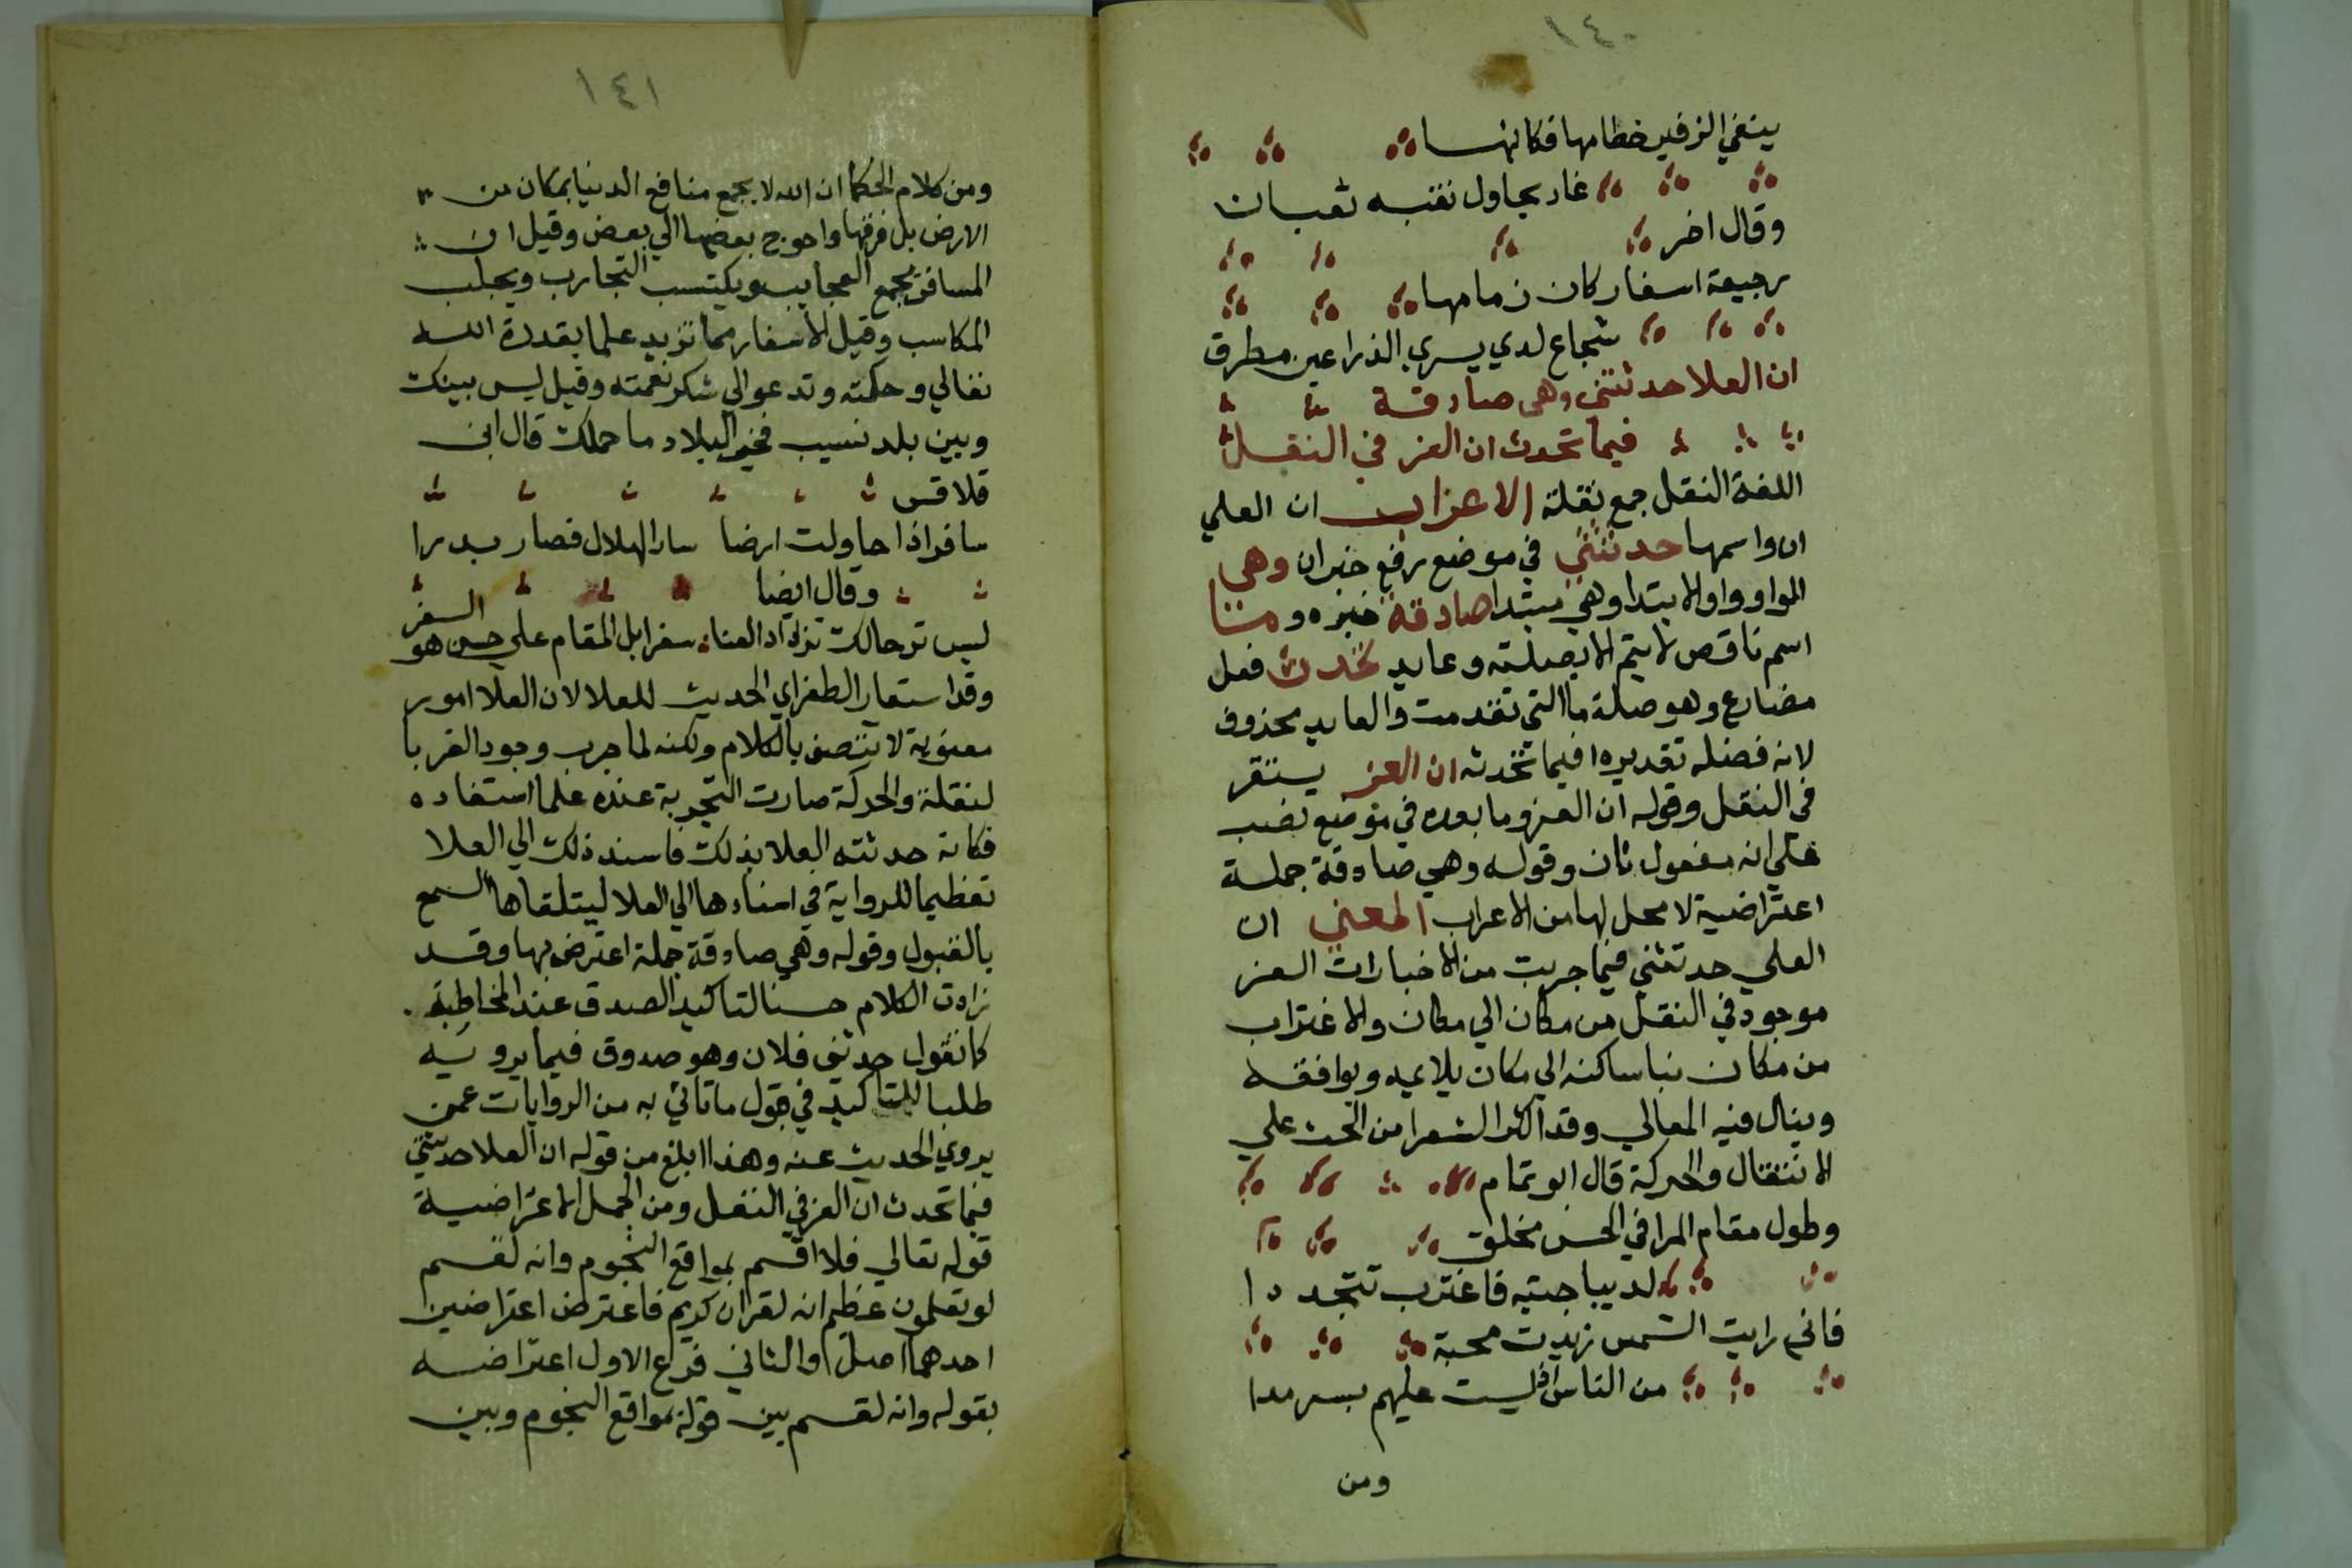 ١٤٠
ينفي الزفير خطامها فكانها
غار يحاول نقبه ثعبان
وقال اخر
رجيعة اسفار كان زمامها
شجاع لدي يسري الذراعين مطرق
ان العلا حدثتني وهي صادقة
فيما تحدث ان العز في النقل
اللغة النقل جمع نقلة الاعراب ان العلي
ان واسمها حدثتني في موضع رفع خبران وهي
الواو واو الابتدا وهي مبتدا صادقة خبره و
اسم ناقص لا يتم الا بصلته وعايد تحدث فعل
مضارع وهو صلة ما التي تقدمت والعايد محذوف
لانه فضله تقديره ا فيما تحدثه ان العز يستقر
في النقل وقوله ان العز وما بعده في موضع نصب
علي انه مفعول ثان وقوله وهي صادقة جملة
اعتراضية لا محل لها من الاعراب المعني ان
العلي حدثتني فيما جربت من الاخبارات العز
موجود في النقل من مكان الي مكان والاغتراب
من مكان نبا ساكنه الي مكان يلايمه ويوافقه
وينال فيه المعالي وقد اكثر الشعرا من الحث علي
الانتقال والحركة قال ابو تمام
وطول مقام المرا في الحسن مخلق
لديباجتيه فاغترب تتجددا
فاني رايت الشمس زيدت محبة
من الناس اذ ليست عليهم بسرمدا
ومن
١٤١
ومن كلام الحكما ان الله لا يجمع منافع الدنيا بمكان من
الارض بل فرقها واحوج بعضها الي بعض وقيل ان
المسافر يجمع العجايب ويكتسب التجارب ويجلب
المكاسب وقيل الاسفار مما تزيد علما بقدرة الله
تعالي وحكمته وتدعو الي شكر نعمته وقيل ليس بينك
وبين بلد نسيب فخير البلاد ما حملك قال ابن
قلاقس
سافر اذا حاولت ارضا سار الهلال فصار بدرا
وقال ايضا
ليس ترحالك تزداد العنا سفرا بل المقام علي حسن هو السفر
وقد استعار الطغراي الحديث للعلا لان العلا امور
معنوية لا تتصف بالكلام ولكنه لما جرب وجود الغربا
لنقلة والحركة صارت التجربة عنده علما استفاده
فكانه حدثته العلا بذلك فاسند ذلك الي العلا
تعظيما للرواية في اسنادها الي العلا ليتلقاها السمع
بالقبول وقوله وهي صادقة جملة اعترض بها وقد
زادت الكلام حسنا لتاكيد الصدق عند المخاطبة
كما تقول حدثني فلان وهو صدوق فيما يرويه
طلبا للتاكيد في قول ما تاتي به من الروايات عمن
يروي الحديث عنه وهذا ابلغ من قوله ان العلا حدثتني
فيما تحدث ان العز في النقل ومن الجمل الاعتراضية
قوله تعالي فلا اقسم بمواقع النجوم وانه لقسم
لو تعلمون عظيم انه لقران كريم فاعترض اعتراضين
احدهما اصل والثاني فرع الاول اعتراضه
بقوله وانه لقسم بين قوله بمواقع النجوم وبين